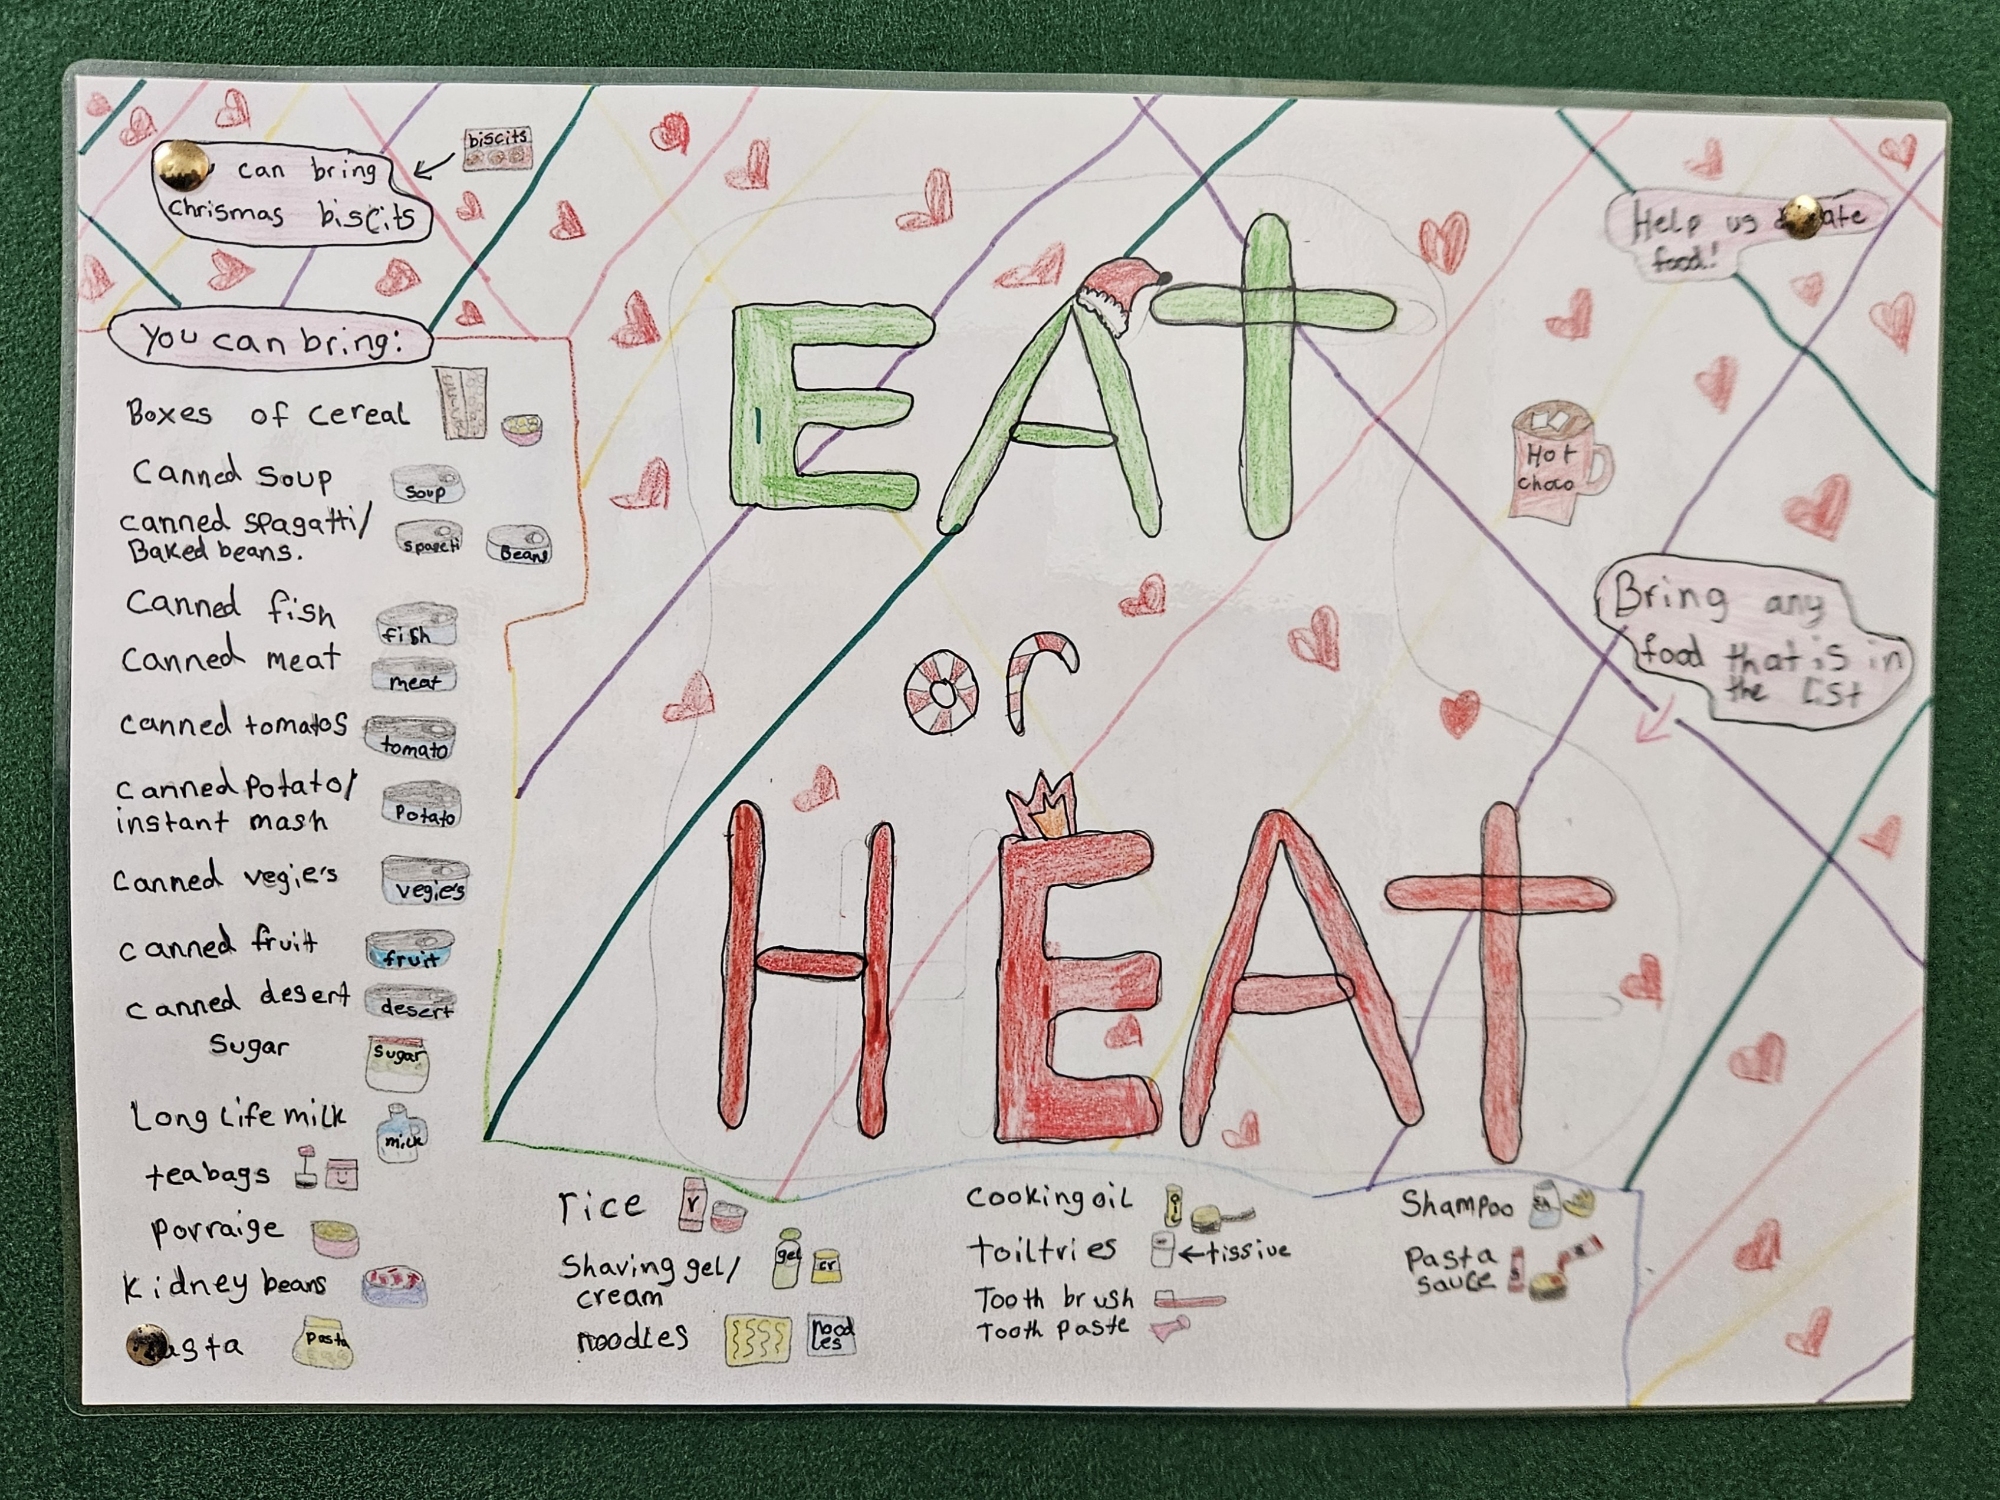 can bring
chrismas biscits
biscits
Help us
food!
EAT
or
HEAT
Hot
choco
Bring any
food that is in
the list
You can bring:
Boxes of cereal
Canned soup
soup
canned spagatti/
Baked beans.
Beans
Canned fish
fish
Canned meat
meat
canned tomatos
tomato
canned potato/
instant mash
Potato
canned vegie's
vegie's
canned fruit
fruit
canned desert
desert
Sugar
Sugar
Long Life milk
milk
teabags
Porraige
Kidney beans
Pasta
rice
r
Shaving gel/
cream
gel
cr
noodles
nood
les
cooking oil
oil
toiltries
tissiue
Tooth brush
Tooth paste
Shampoo
Sh
Pasta
sauce
s